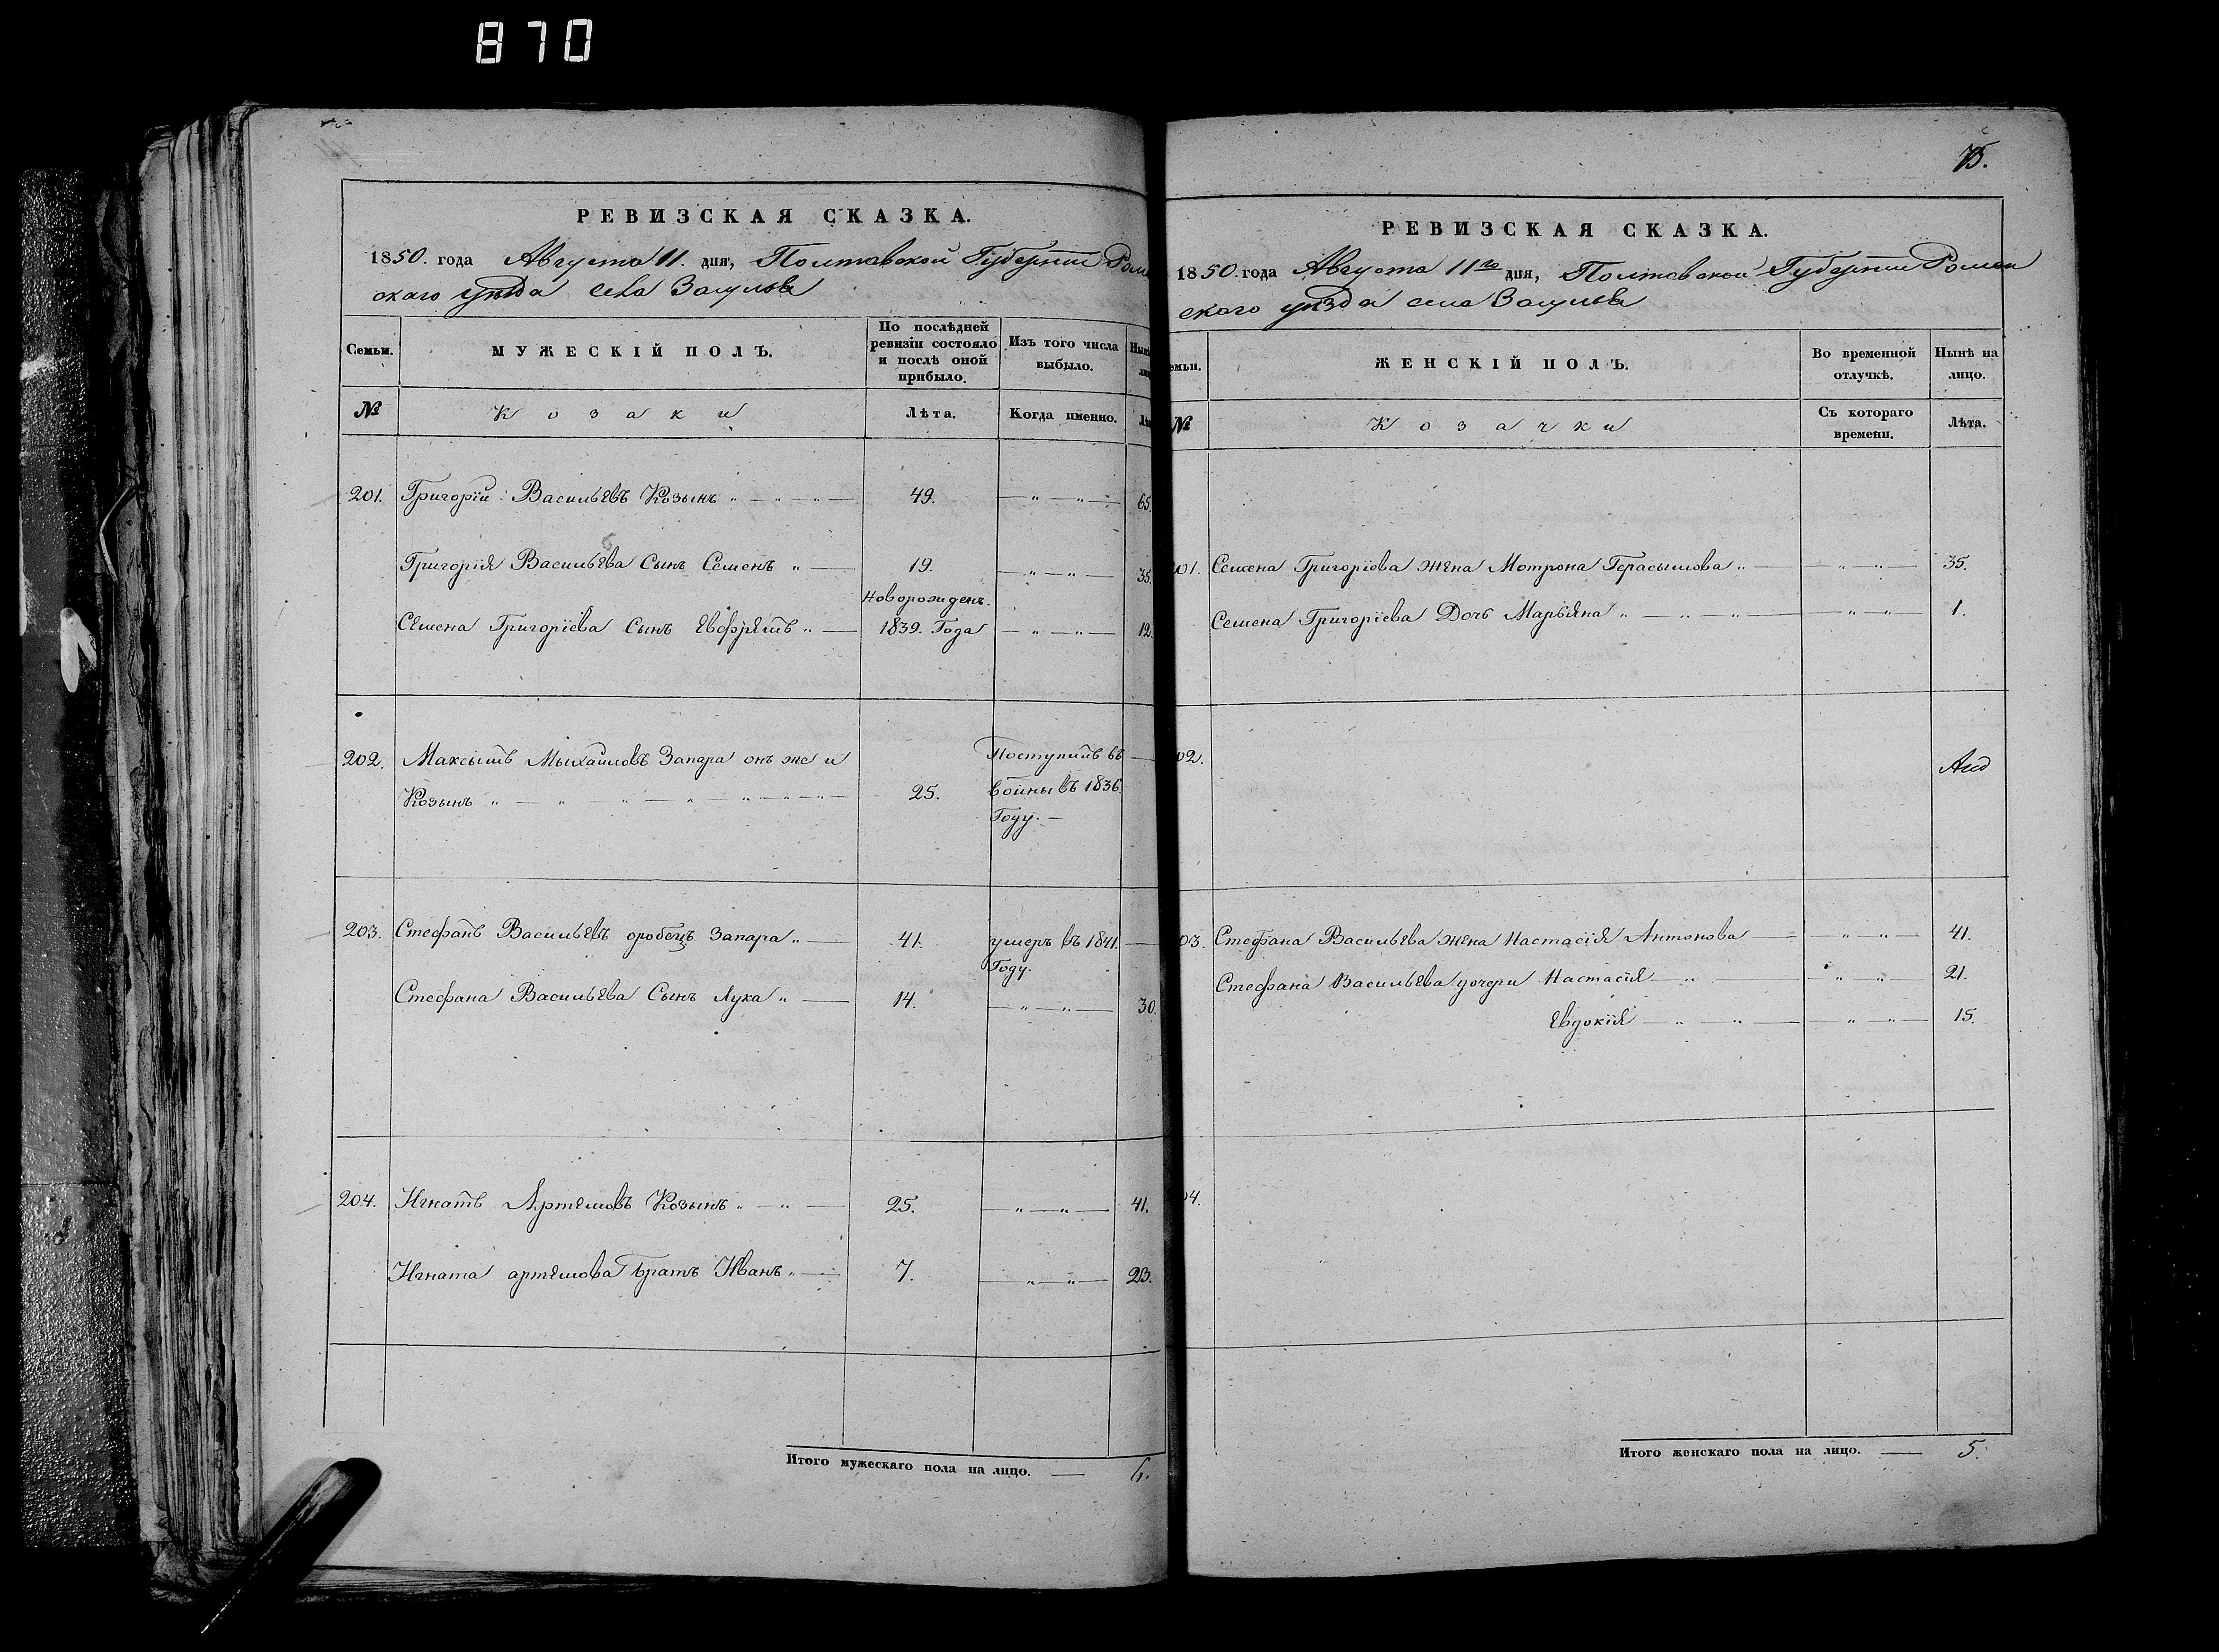 870
РЕВИЗСКАЯ СКАЗКА.
1850. года Августа 11. дня, Полтавской Губернии Ромен
скаго уѣзда села Засулья
Семьи.
МУЖЕСКІЙ ПОЛЪ.
По послѣдней
ревизіи состояло
и послѣ оной
прибыло.
Изъ того числа
выбыло.
№
Козаки
Лѣта.
Когда именно.
201. Григорій Васильевъ Козынъ 49. 65.
Григорія Васильева Сынъ Семенъ 19. 35.
Новорожденъ.
Семена Григоріева Сынъ Евфремъ 1839. Года 12.
202. Максымъ Мыхайловъ Запара онъ же и Поступилъ въ
Козынъ 25. войны въ 1836
Году.
203. Стефанъ Васильевъ оробецъ Запара 41. умеръ въ 1841.
Году.
Стефана Васильева Сынъ Лука 14. 30.
204. Игнатъ Артемовъ Козынъ 25. 41.
Игната артемова братъ Иванъ 7. 23.
Итого мужескаго пола на лицо. 6.
75.
РЕВИЗСКАЯ СКАЗКА.
1850. года Августа 11го дня, Полтавской Губернии Ромен
ского уѣзда села Засулья
емьи.
ЖЕНСКІЙ ПОЛЪ.
Во временной
отлучкѣ.
Нынѣ на
лицо.
№
Козачки
Съ котораго
времени.
Лѣта.
01. Семена Григоріева жена Мотрона Герасымова 35.
Семена Григоріева Дочь Марьяна 1.
02.
03. Стефана Васильева жена Настасія Антонова 41.
Стефана Васильева дочери Настасія 21.
Евдокія 15.
04.
Итого женскаго пола на лицо. 5.